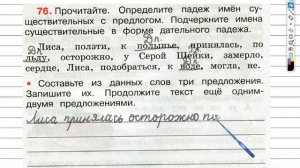 76. Прочитайте. Определите падеж имён су-
ществительных с предлогом. Подчеркните имена
существительные в форме дательного падежа.
Д.п.
Лиса, ползти, к полынье, принялась, по
Д.п. Д.п.
льду, осторожно, у Серой Шейки, замерло,
сердце, Лиса, подобраться, к воде, могла, не.
• Составьте из данных слов три предложения.
Запишите их. Продолжите текст ещё одним-
двумя предложениями.
Лиса принялась осторожно по